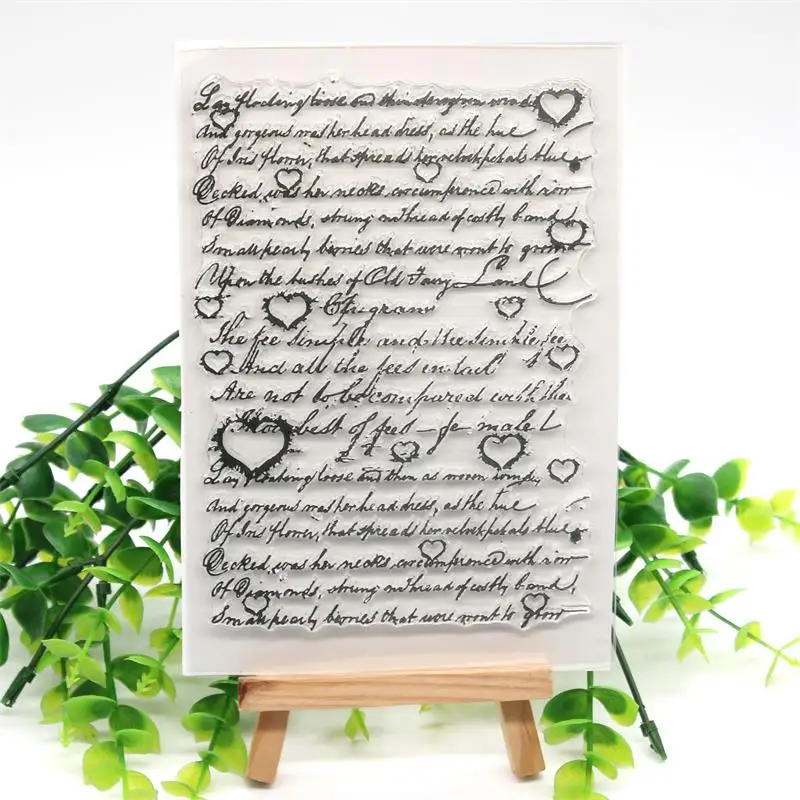 Lay floating loose and
And gorgeous was her head dress, as the hue
Of Iris flower, that spreads her velvet petals blue
Decked was her necks circumfrence with row
Of Diamonds, strung on thread of costly band
Small pearly berries that were wont to grow
Upon the bushes of Old Fairy Land
Epigram
The fee simple and the simple fee
And all the fees in tail
Are not to be compared with thee
best of fees - fe male!
Lay floating loose and then as woven
And gorgeous was her head dress, as the hue
Of Iris flower, that spreads her velvet petals blue
Decked was her necks circumfrence with row
Of Diamonds, strung on thread of costly band,
Small pearly berries that were wont to grow